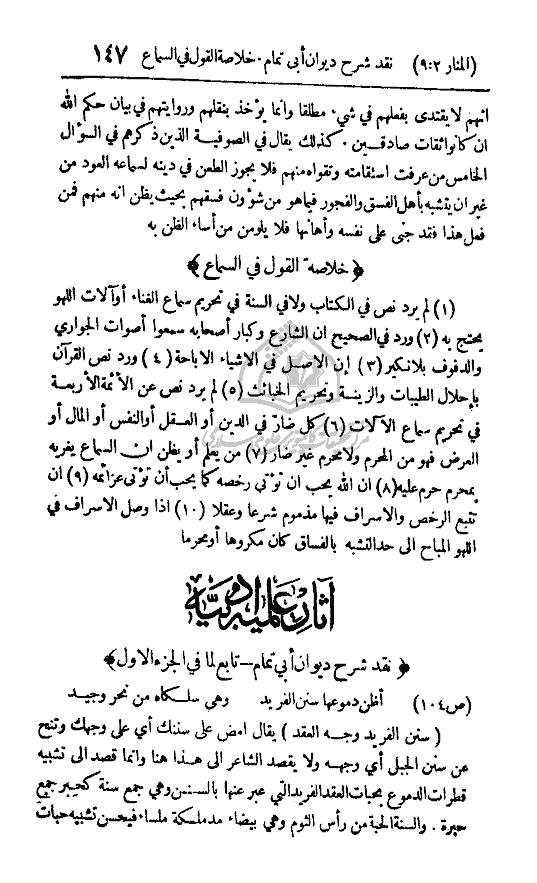 (المنار ٢:٩) نقد شرح ديوان أبي تمام. خلاصة القول في السماع ١٤٧
انهم لا يقتدى بفعلهم في شيء مطلقا وانما يؤخذ بنقلهم وروايتهم في بيان حكم الله
ان كانوا ثقات صادقين. كذلك يقال في الصوفية الذين ذكرهم في السؤال
الخامس من عرفت استقامته وتقواه منهم فلا يجوز الطعن في دينه لسماعه العود من
غير ان يتشبه بأهل الفسق والفجور فيما هو من شؤون فسقهم بحيث يظن انه منهم فمن
فعل هذا فقد جنى على نفسه وأهانها فلا يلومن من أساء الظن به
﴿ خلاصة القول في السماع ﴾
(١) لم يرد نص في الكتاب ولا في السنة في تحريم سماع الغناء أو آلات اللهو
يحتج به (٢) ورد في الصحيح ان الشارع وكبار أصحابه سمعوا أصوات الجواري
والدفوف بلا نكير (٣) إن الاصل في الاشياء الاباحة (٤) ورد نص القرآن
بإحلال الطيبات والزينة وتحريم الخبائث (٥) لم يرد نص عن الأئمة الأربعة
في تحريم سماع الآلات (٦) كل ضار في الدين أو العقل أو النفس أو المال أو
العرض فهو من المحرم ولا محرم غير ضار (٧) من يعلم أو يظن ان السماع يغريه
بمحرم حرم عليه (٨) ان الله يحب ان تؤتى رخصه كما يحب أن تؤتى عزائمه (٩) ان
تتبع الرخص والاسراف فيها مذموم شرعا وعقلا (١٠) اذا وصل الاسراف في
اللهو المباح الى حد التشبه بالفساق كان مكروها أو محرما
آثار علمية ادبية
﴿ نقد شرح ديوان أبي تمام – تابع لما في الجزء الاول ﴾
(ص ١٠٤) أظن دموعها سنن الفريد وهي سلكاه من نحر وجيد
( سنن الفريد وجه العقد ) يقال امض على سننك أي على وجهك وتنح
عن سنن الجبل أي وجهه ولا يقصد الشاعر الى هذا هنا وانما قصد الى تشبيه
قطرات الدموع بحبات العقد الفريد التي عبر عنها بالسنن وهي جمع سنة كحبر جمع
حبرة. والسنة الحبة من رأس الثوم وهي بيضاء مدملكة ملساء فيحسن تشبيه حبات